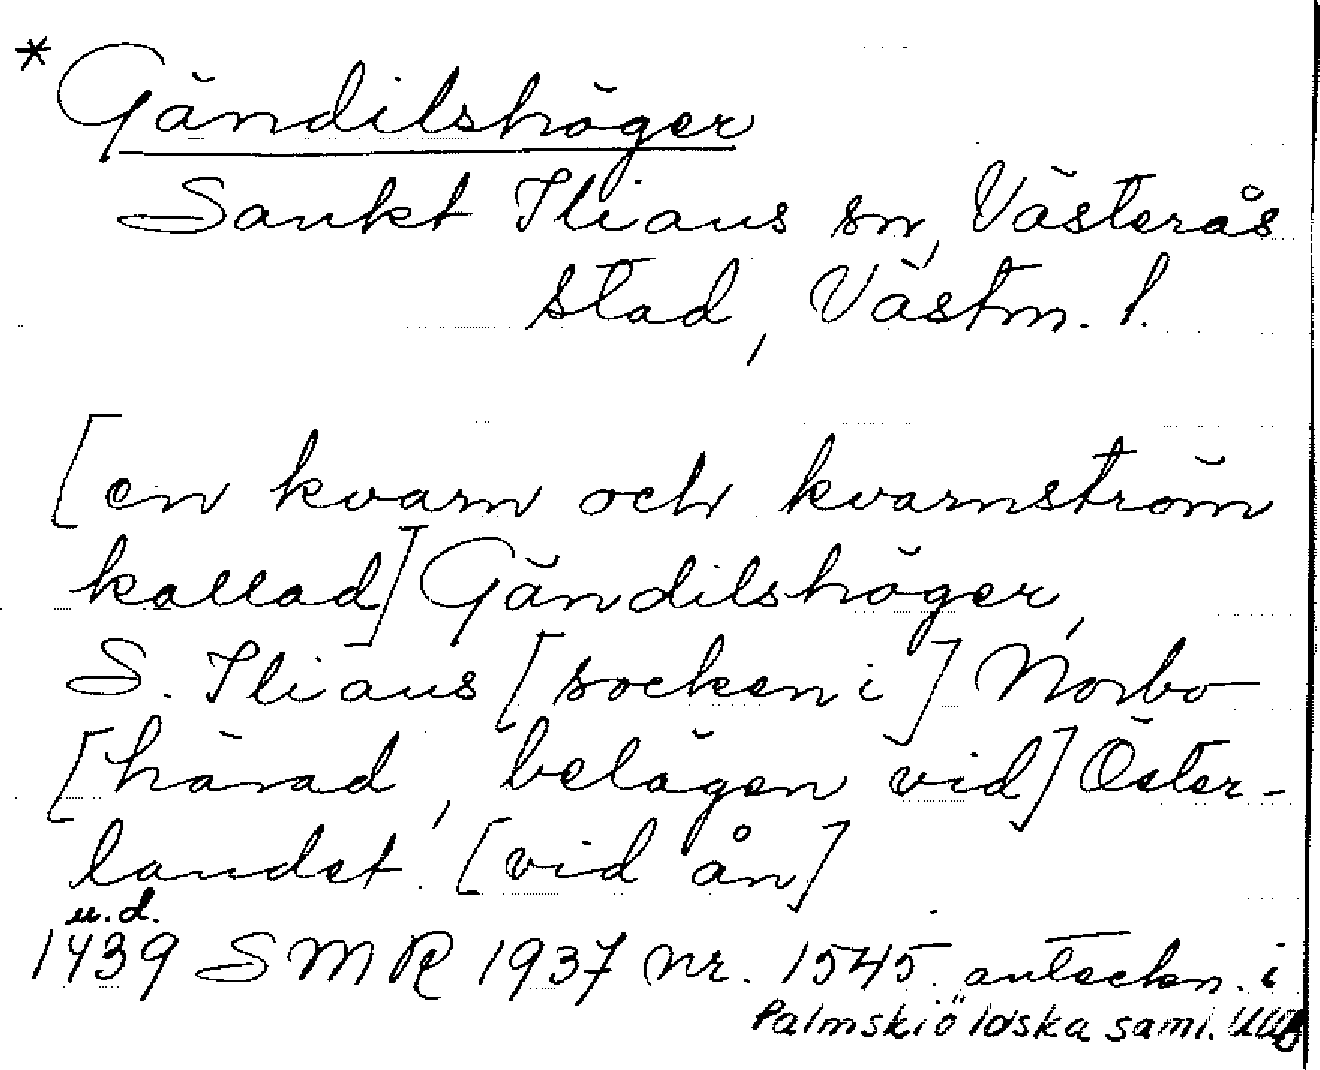 * Gändilshöger
Sankt Ilians sn, Västerås
stad, Västm. l.
[en kvarn och kvarnström
kallad] Gändilshöger,
S. Ilians [socken i] Norbo
[härad, belägen vid] Öster-
landet. [vid ån]
u.d.
1439 SMR 1937 nr. 1545. anteckn. i
Palmskiöldska saml. UUB